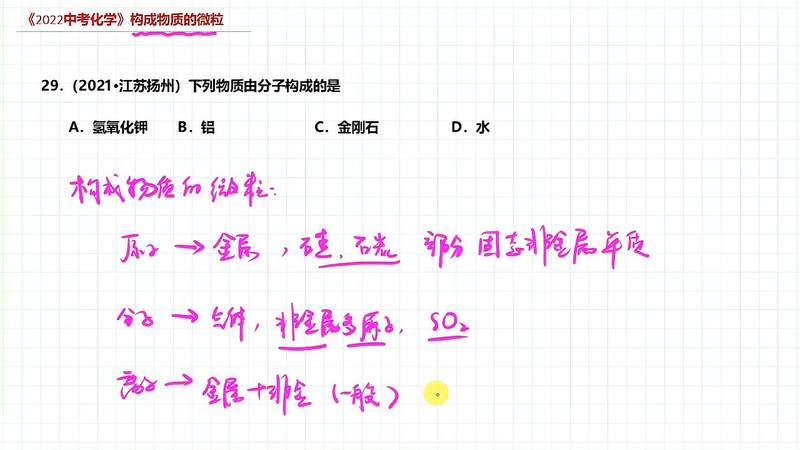 《2022中考化学》构成物质的微粒
29.（2021•江苏扬州）下列物质由分子构成的是
A. 氢氧化钾 B. 铝 C. 金刚石 D. 水
构成物质的微粒:
原子 → 金属，硅、石炭 部分固态非金属单质
分子 → 气体，非金属多原子. SO₂
离子 → 金属+非金（一般）